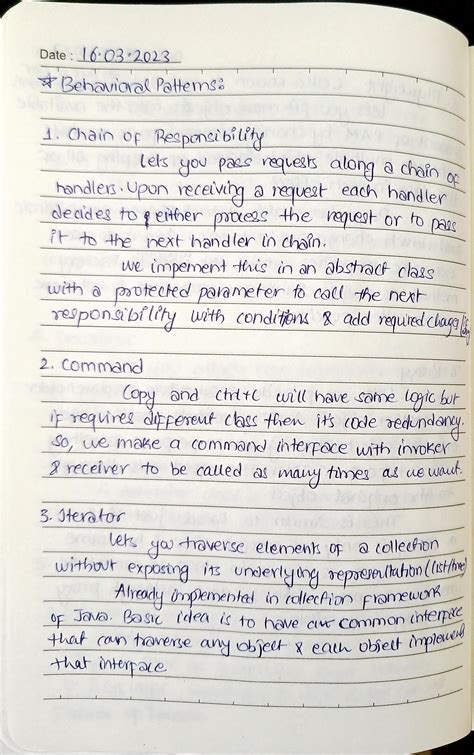 Date : 16.03.2023
* Behavioral Patterns:
1. Chain of Responsibility
lets you pass requests along a chain of
handlers. Upon receiving a request each handler
decides to either process the request or to pass
it to the next handler in chain.
We impement this in an abstract class
with a protected parameter to call the next
responsibility with conditions & add required
2. Command
Copy and ctrl+c will have same logic but
if requires different class then its code redundancy.
So, we make a command interface with invoker
& receiver to be called as many times as we want.
3. Iterator
lets you traverse elements of a collection
without exposing its underlying representation (list/tree)
Already implemented in collection framework
of Java. Basic idea is to have common interface
that can traverse any object & each object implements
that interface